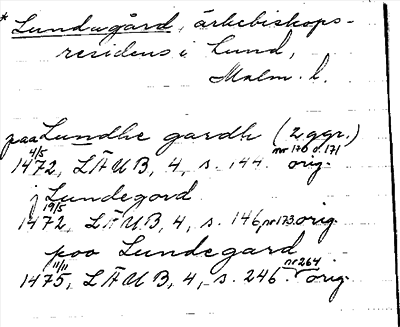 * Lundagård, ärkebiskops-
residens i Lund,
Malm. l.
paa Lundhe gardh (2 ggr.)
4/5 nr 170 o. 171
1472, LÄUB, 4, s. 144. orig.
j Lundegord
19/5
1472, LÄUB, 4, s. 146, nr 173. orig.
poo Lundegard
11/11 nr 264
1475, LÄUB, 4, s. 246. orig.